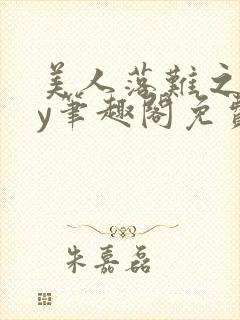 美人落难之
y笔趣阁免费
朱嘉磊